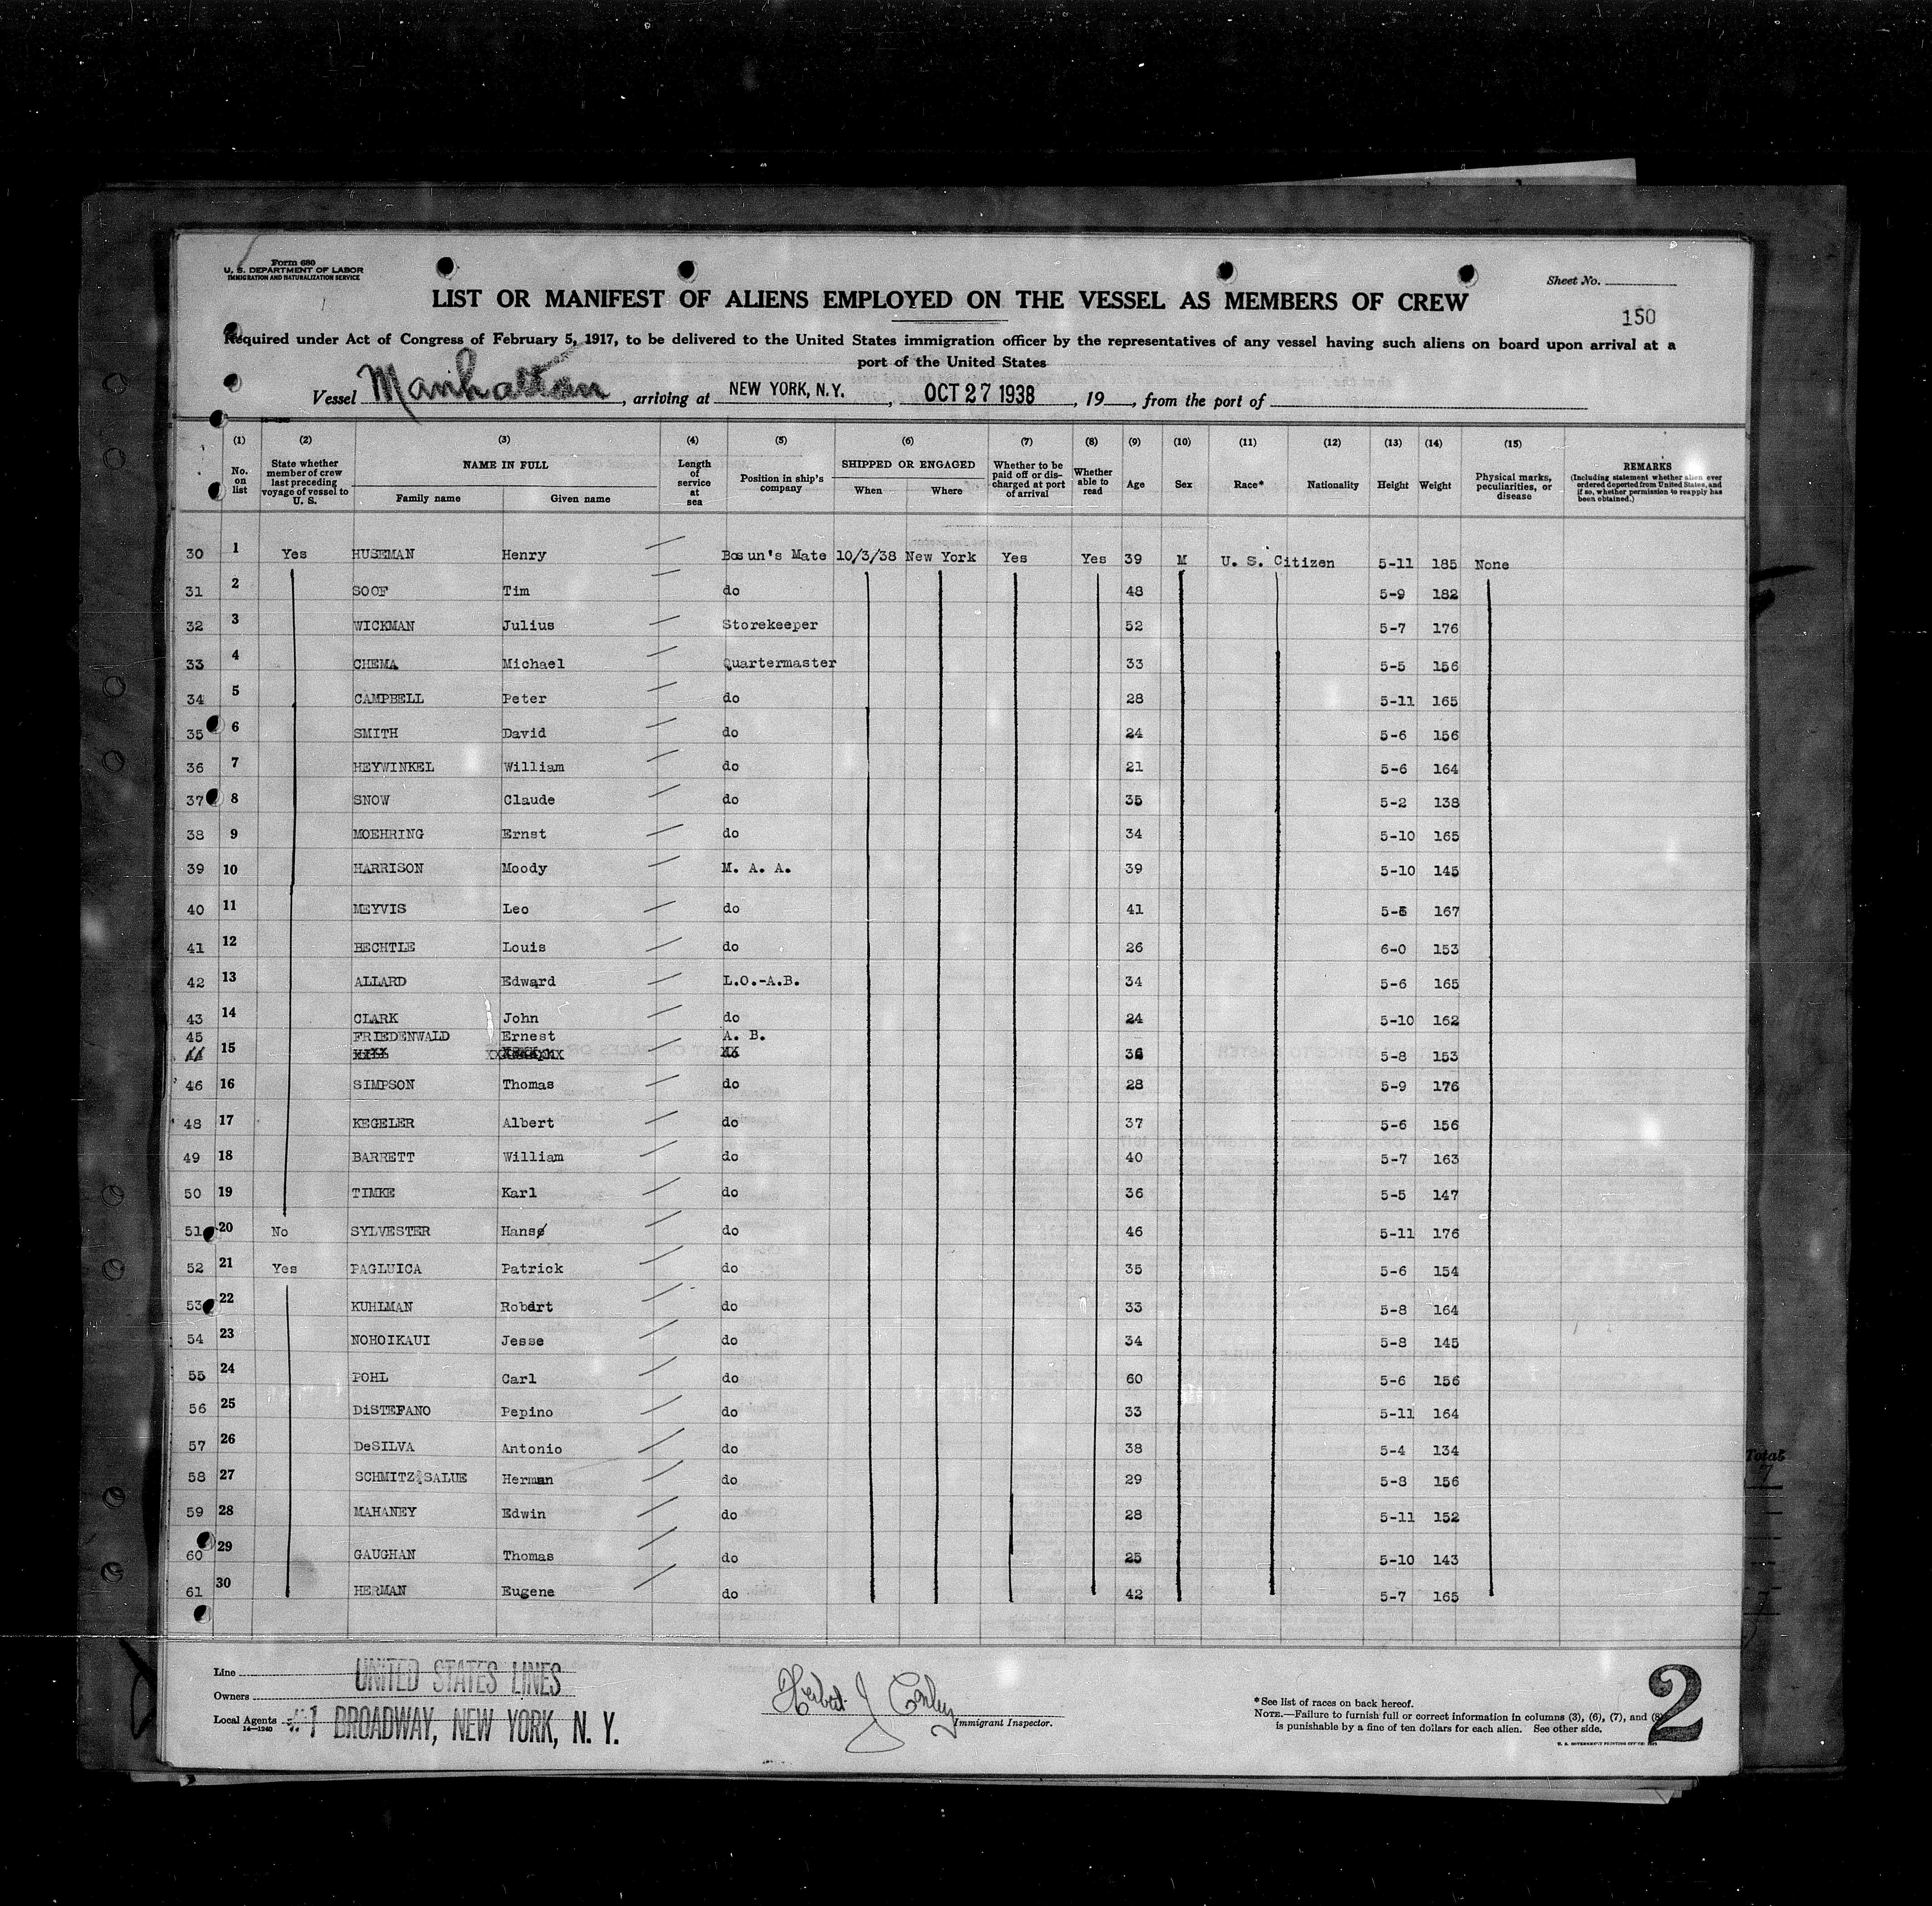 Form 680
U. S. DEPARTMENT OF LABOR
IMMIGRATION AND NATURALIZATION SERVICE
Sheet No.
LIST OR MANIFEST OF ALIENS EMPLOYED ON THE VESSEL AS MEMBERS OF CREW
150
Required under Act of Congress of February 5, 1917, to be delivered to the United States immigration officer by the representatives of any vessel having such aliens on board upon arrival at a
port of the United States
Vessel Manhattan, arriving at NEW YORK, N.Y., OCT 27 1938, 19, from the port of
(1) (2) (3) (4) (5) (6) (7) (8) (9) (10) (11) (12) (13) (14) (15)
No. on list State whether member of crew last preceding voyage of vessel to U. S. NAME IN FULL Family name Given name Length of service at sea Position in ship's company SHIPPED OR ENGAGED When Where Whether to be paid off or discharged at port of arrival Whether able to read Age Sex Race* Nationality Height Weight Physical marks, peculiarities, or disease REMARKS (Including statement whether alien ever ordered deported from United States, and if so, whether permission to reapply has been obtained.)
30 1 Yes HUSEMAN Henry Bosun's Mate 10/3/38 New York Yes Yes 39 M U. S. Citizen 5-11 185 None
31 2 SOOF Tim do 48 5-9 182
32 3 WICKMAN Julius Storekeeper 52 5-7 176
33 4 CHEMA Michael Quartermaster 33 5-5 156
34 5 CAMPBELL Peter do 28 5-11 165
35 6 SMITH David do 24 5-6 156
36 7 HEYWINKEL William do 21 5-6 164
37 8 SNOW Claude do 35 5-2 138
38 9 MOEHRING Ernst do 34 5-10 165
39 10 HARRISON Moody M. A. A. 39 5-10 145
40 11 MEYVIS Leo do 41 5-5 167
41 12 BECHTLE Louis do 26 6-0 153
42 13 ALLARD Edward L.O.-A.B. 34 5-6 165
43 14 CLARK John do 24 5-10 162
45 15 FRIEDENWALD Ernest A. B. 36 5-8 153
46 16 SIMPSON Thomas do 28 5-9 176
48 17 KEGELER Albert do 37 5-6 156
49 18 BARRETT William do 40 5-7 163
50 19 TIMKE Karl do 36 5-5 147
51 20 No SYLVESTER Hans do 46 5-11 176
52 21 Yes PAGLUICA Patrick do 35 5-6 154
53 22 KUHLMAN Robert do 33 5-8 164
54 23 NOHOIKAUI Jesse do 34 5-8 145
55 24 POHL Carl do 60 5-6 156
56 25 DiSTEFANO Pepino do 33 5-11 164
57 26 DeSILVA Antonio do 38 5-4 134
58 27 SCHMITZ SALUE Herman do 29 5-8 156
59 28 MAHANEY Edwin do 28 5-11 152
60 29 GAUGHAN Thomas do 25 5-10 143
61 30 HERMAN Eugene do 42 5-7 165
Total
7
Line UNITED STATES LINES
Owners
Local Agents #1 BROADWAY, NEW YORK, N. Y.
14-1240
Herbert J Conley
Immigrant Inspector.
*See list of races on back hereof.
NOTE.—Failure to furnish full or correct information in columns (3), (6), (7), and (8)
is punishable by a fine of ten dollars for each alien. See other side.
U. S. GOVERNMENT PRINTING OFFICE
2